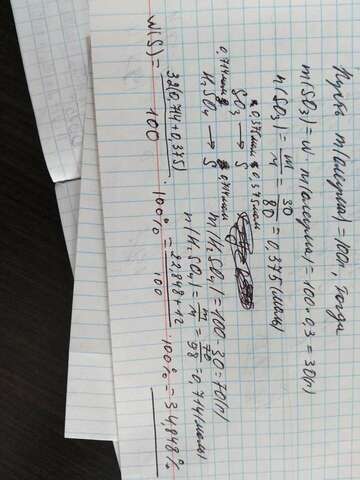 Пусть m(олеума) = 100г, тогда
m(SO₃) = w · m(олеума) = 100 · 0,3 = 30(г)
n(SO₃) = m/M = 30/80 = 0,375(моль)
0,375моль 0,375моль
SO₃ → S
m(H₂SO₄) = 100 - 30 = 70(г)
0,714моль 0,714моль
H₂SO₄ → S
n(H₂SO₄) = m/M = 70/98 = 0,714(моль)
w(S) = 32(0,714+0,375)/100 · 100% = 22,848+12/100 · 100% = 34,848%